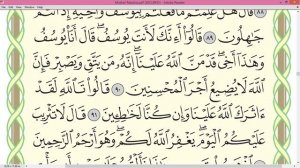 Mushaf Madinah.pdf (SECURED) - Adobe Reader
٨٨ قَالَ هَلْ عَلِمْتُم مَّا فَعَلْتُم بِيُوسُفَ وَأَخِيهِ إِذْ أَنتُمْ
جَٰهِلُونَ ٨٩ قَالُوٓا۟ أَءِنَّكَ لَأَنتَ يُوسُفُ ۖ قَالَ أَنَا۠ يُوسُفُ
وَهَٰذَآ أَخِى ۖ قَدْ مَنَّ ٱللَّهُ عَلَيْنَآ ۖ إِنَّهُۥ مَن يَتَّقِ وَيَصْبِرْ فَإِنَّ
ٱللَّهَ لَا يُضِيعُ أَجْرَ ٱلْمُحْسِنِينَ ٩٠ قَالُوا۟ تَٱللَّهِ لَقَدْ
ءَاثَرَكَ ٱللَّهُ عَلَيْنَا وَإِن كُنَّا لَخَٰطِـِٔينَ ٩١ قَالَ لَا تَثْرِيبَ
عَلَيْكُمُ ٱلْيَوْمَ ۖ يَغْفِرُ ٱللَّهُ لَكُمْ ۖ وَهُوَ أَرْحَمُ ٱلرَّٰحِمِينَ